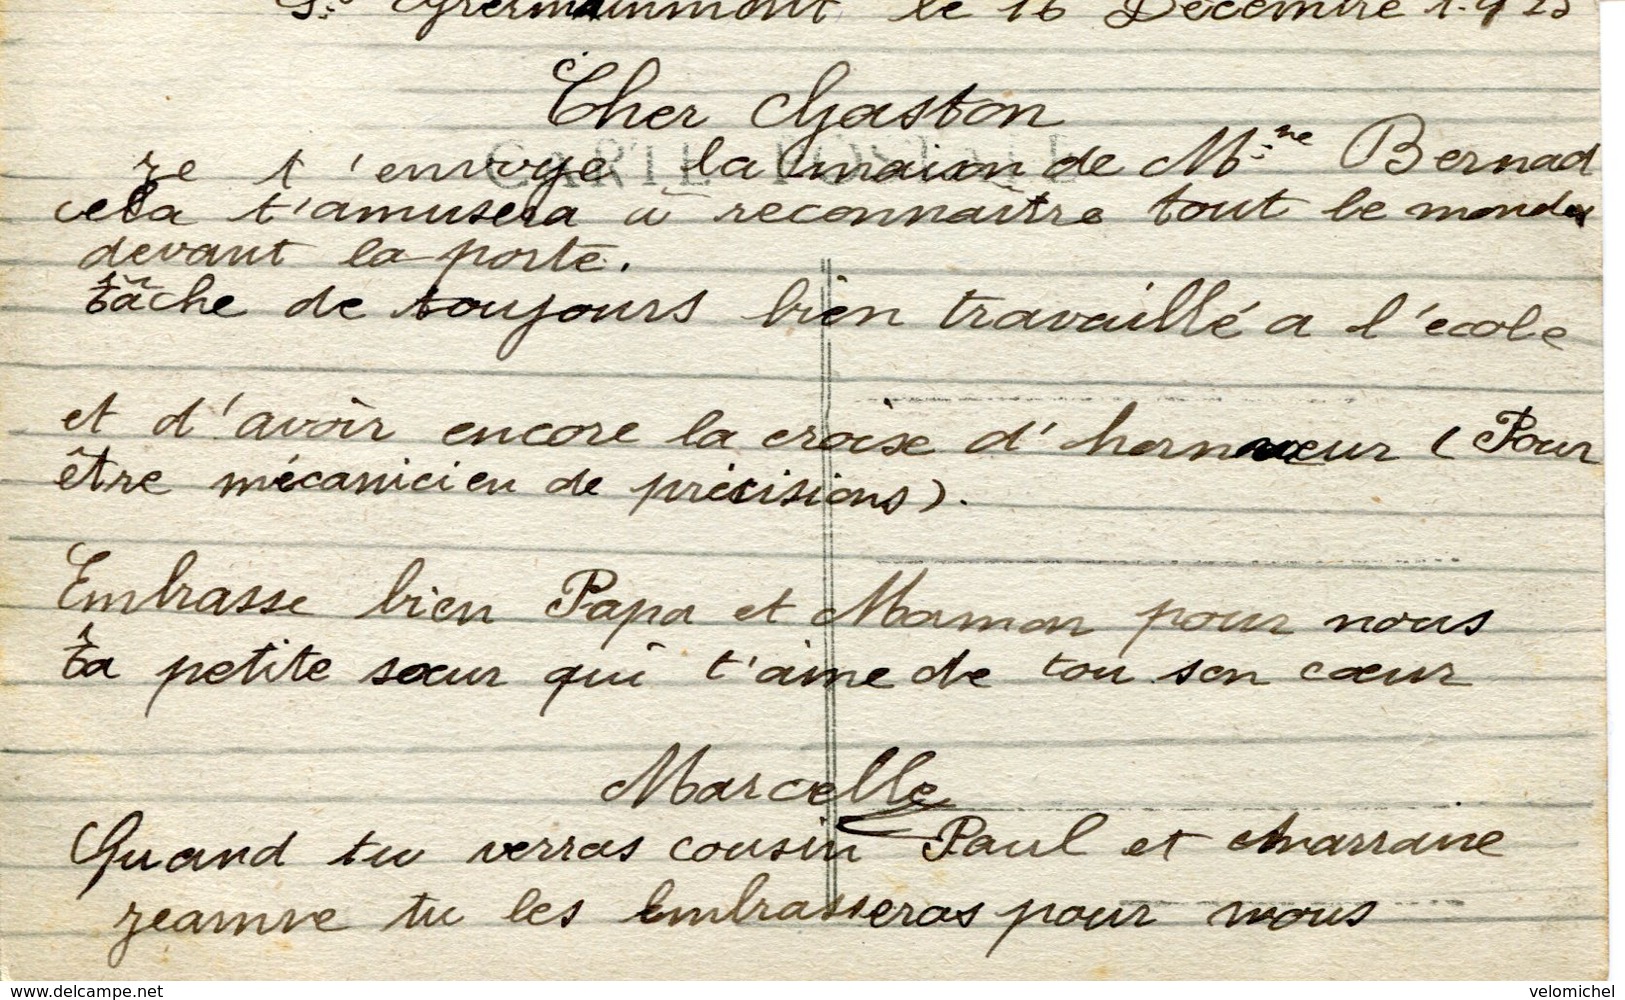 St Germainmont le 16 Décembre 1.923
Cher Gaston
CARTE POSTALE
je t'envoye la maison de Mme Bernad
cela t'amusera à reconnaître tout le monde
devant la porte.
tâche de toujours bien travaillé a l'école
et d'avoir encore la croise d'honneur (Pour
être mécanicien de précisions).
Embrasse bien Papa et Maman pour nous
ta petite sœur qui t'aime de tou son cœur
Marcelle
Quand tu verras cousin Paul et Marraine
jeanne tu les Embrasseras pour nous
www.delcampe.net
velomichel